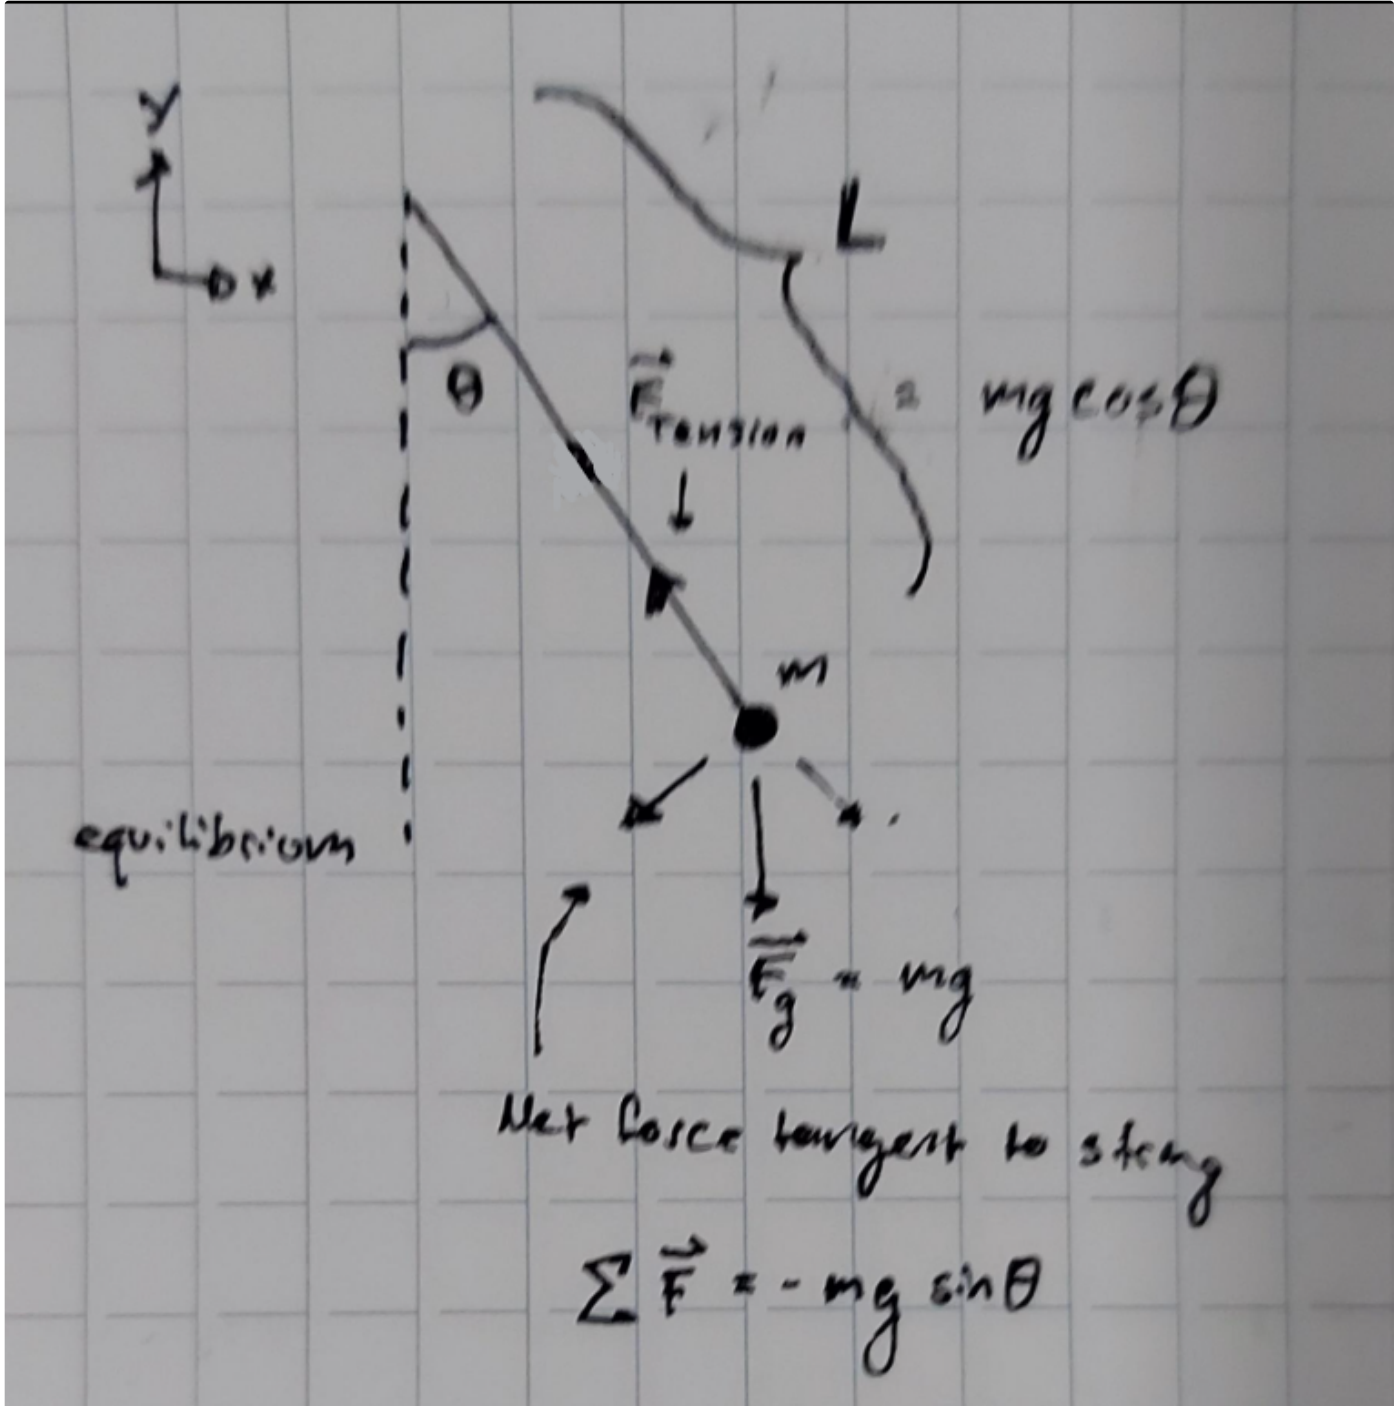 y
x
L
θ
F⃗ Tension
= mg cosθ
m
equilibrium
F⃗g = mg
Net force tangent to string
∑ F⃗ = - mg sinθ